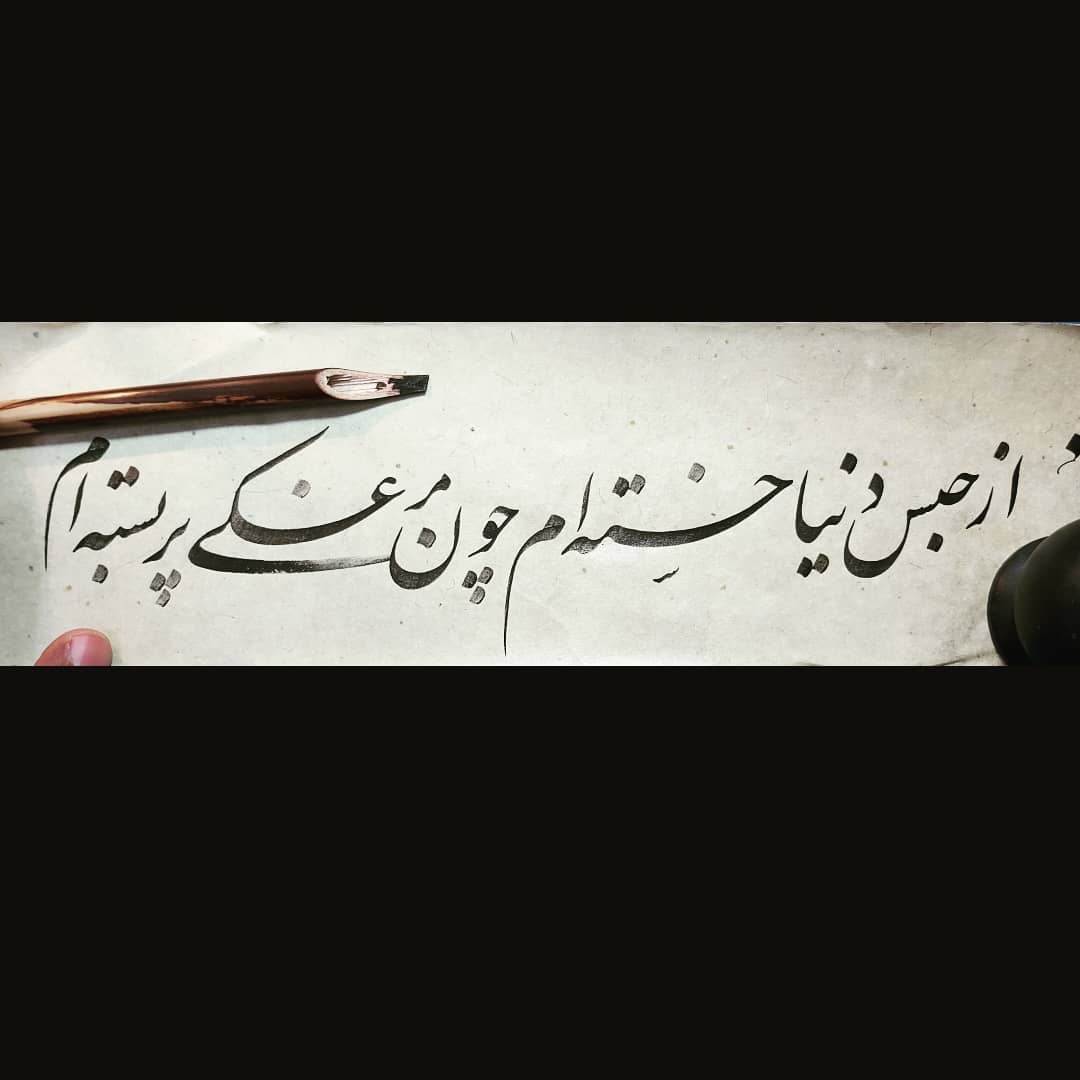 از حبس دنیا خسته ام چون مرغکی پر بسته ام